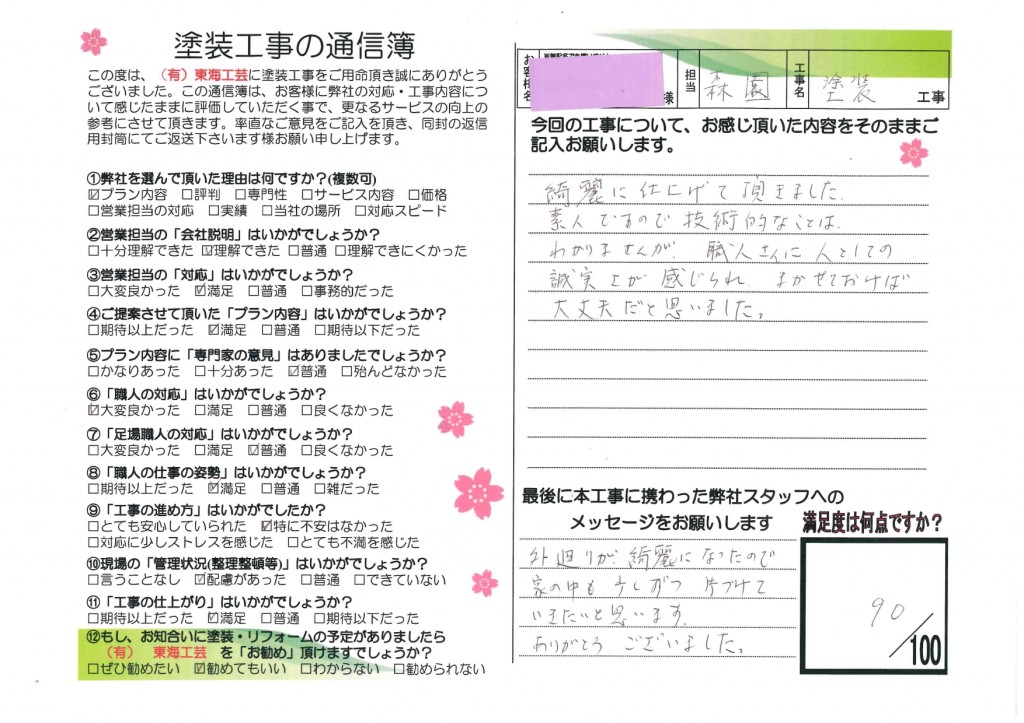 塗装工事の通信簿
この度は、（有）東海工芸に塗装工事をご用命頂き誠にありがとう
ございました。この通信簿は、お客様に弊社の対応・工事内容につ
いて感じたままに評価していただく事で、更なるサービスの向上の
参考にさせて頂きます。率直なご意見をご記入を頂き、同封の返信
用封筒にてご返送下さいます様お願い申し上げます。
①弊社を選んで頂いた理由は何ですか？(複数可)
☑プラン内容 □評判 □専門性 □サービス内容 □価格
□営業担当の対応 □実績 □当社の場所 □対応スピード
②営業担当の「会社説明」はいかがでしょうか？
□十分理解できた ☑理解できた □普通 □理解できにくかった
③営業担当の「対応」はいかがでしょうか？
□大変良かった ☑満足 □普通 □事務的だった
④ご提案させて頂いた「プラン内容」はいかがでしょうか？
□期待以上だった ☑満足 □普通 □期待以下だった
⑤プラン内容に「専門家の意見」はありましたでしょうか？
□かなりあった □十分あった ☑普通 □殆んどなかった
⑥「職人の対応」はいかがでしょうか？
☑大変良かった □満足 □普通 □良くなかった
⑦「足場職人の対応」はいかがでしょうか？
□大変良かった □満足 ☑普通 □良くなかった
⑧「職人の仕事の姿勢」はいかがでしょうか？
□期待以上だった ☑満足 □普通 □雑だった
⑨「工事の進め方」はいかがでしたか？
□とても安心していられた ☑特に不安はなかった
□対応に少しストレスを感じた □とても不満を感じた
⑩現場の「管理状況(整理整頓等)」はいかがでしょうか？
□言うことなし ☑配慮があった □普通 □できていない
⑪「工事の仕上がり」はいかがでしょうか？
□期待以上だった ☑満足 □普通 □期待以下だった
⑫もし、お知合いに塗装・リフォームの予定がありましたら
（有） 東海工芸 を「お勧め」頂けますでしょうか？
□ぜひ勧めたい ☑勧めてもいい □わからない □勧められない
お客様名 様 担当 森園 工事名 塗装 工事
今回の工事について、お感じ頂いた内容をそのままご
記入お願いします。
綺麗に仕上げて頂きました.
素人ですので技術的なことは、
わかりませんが、職人さんに人としての
誠実さが感じられ、まかせておけば
大丈夫だと思いました。
最後に本工事に携わった弊社スタッフへの
メッセージをお願いします
外廻りが綺麗になったので
家の中も少しずつ片づけて
いきたいと思います.
ありがとうございました。
満足度は何点ですか？
90/100